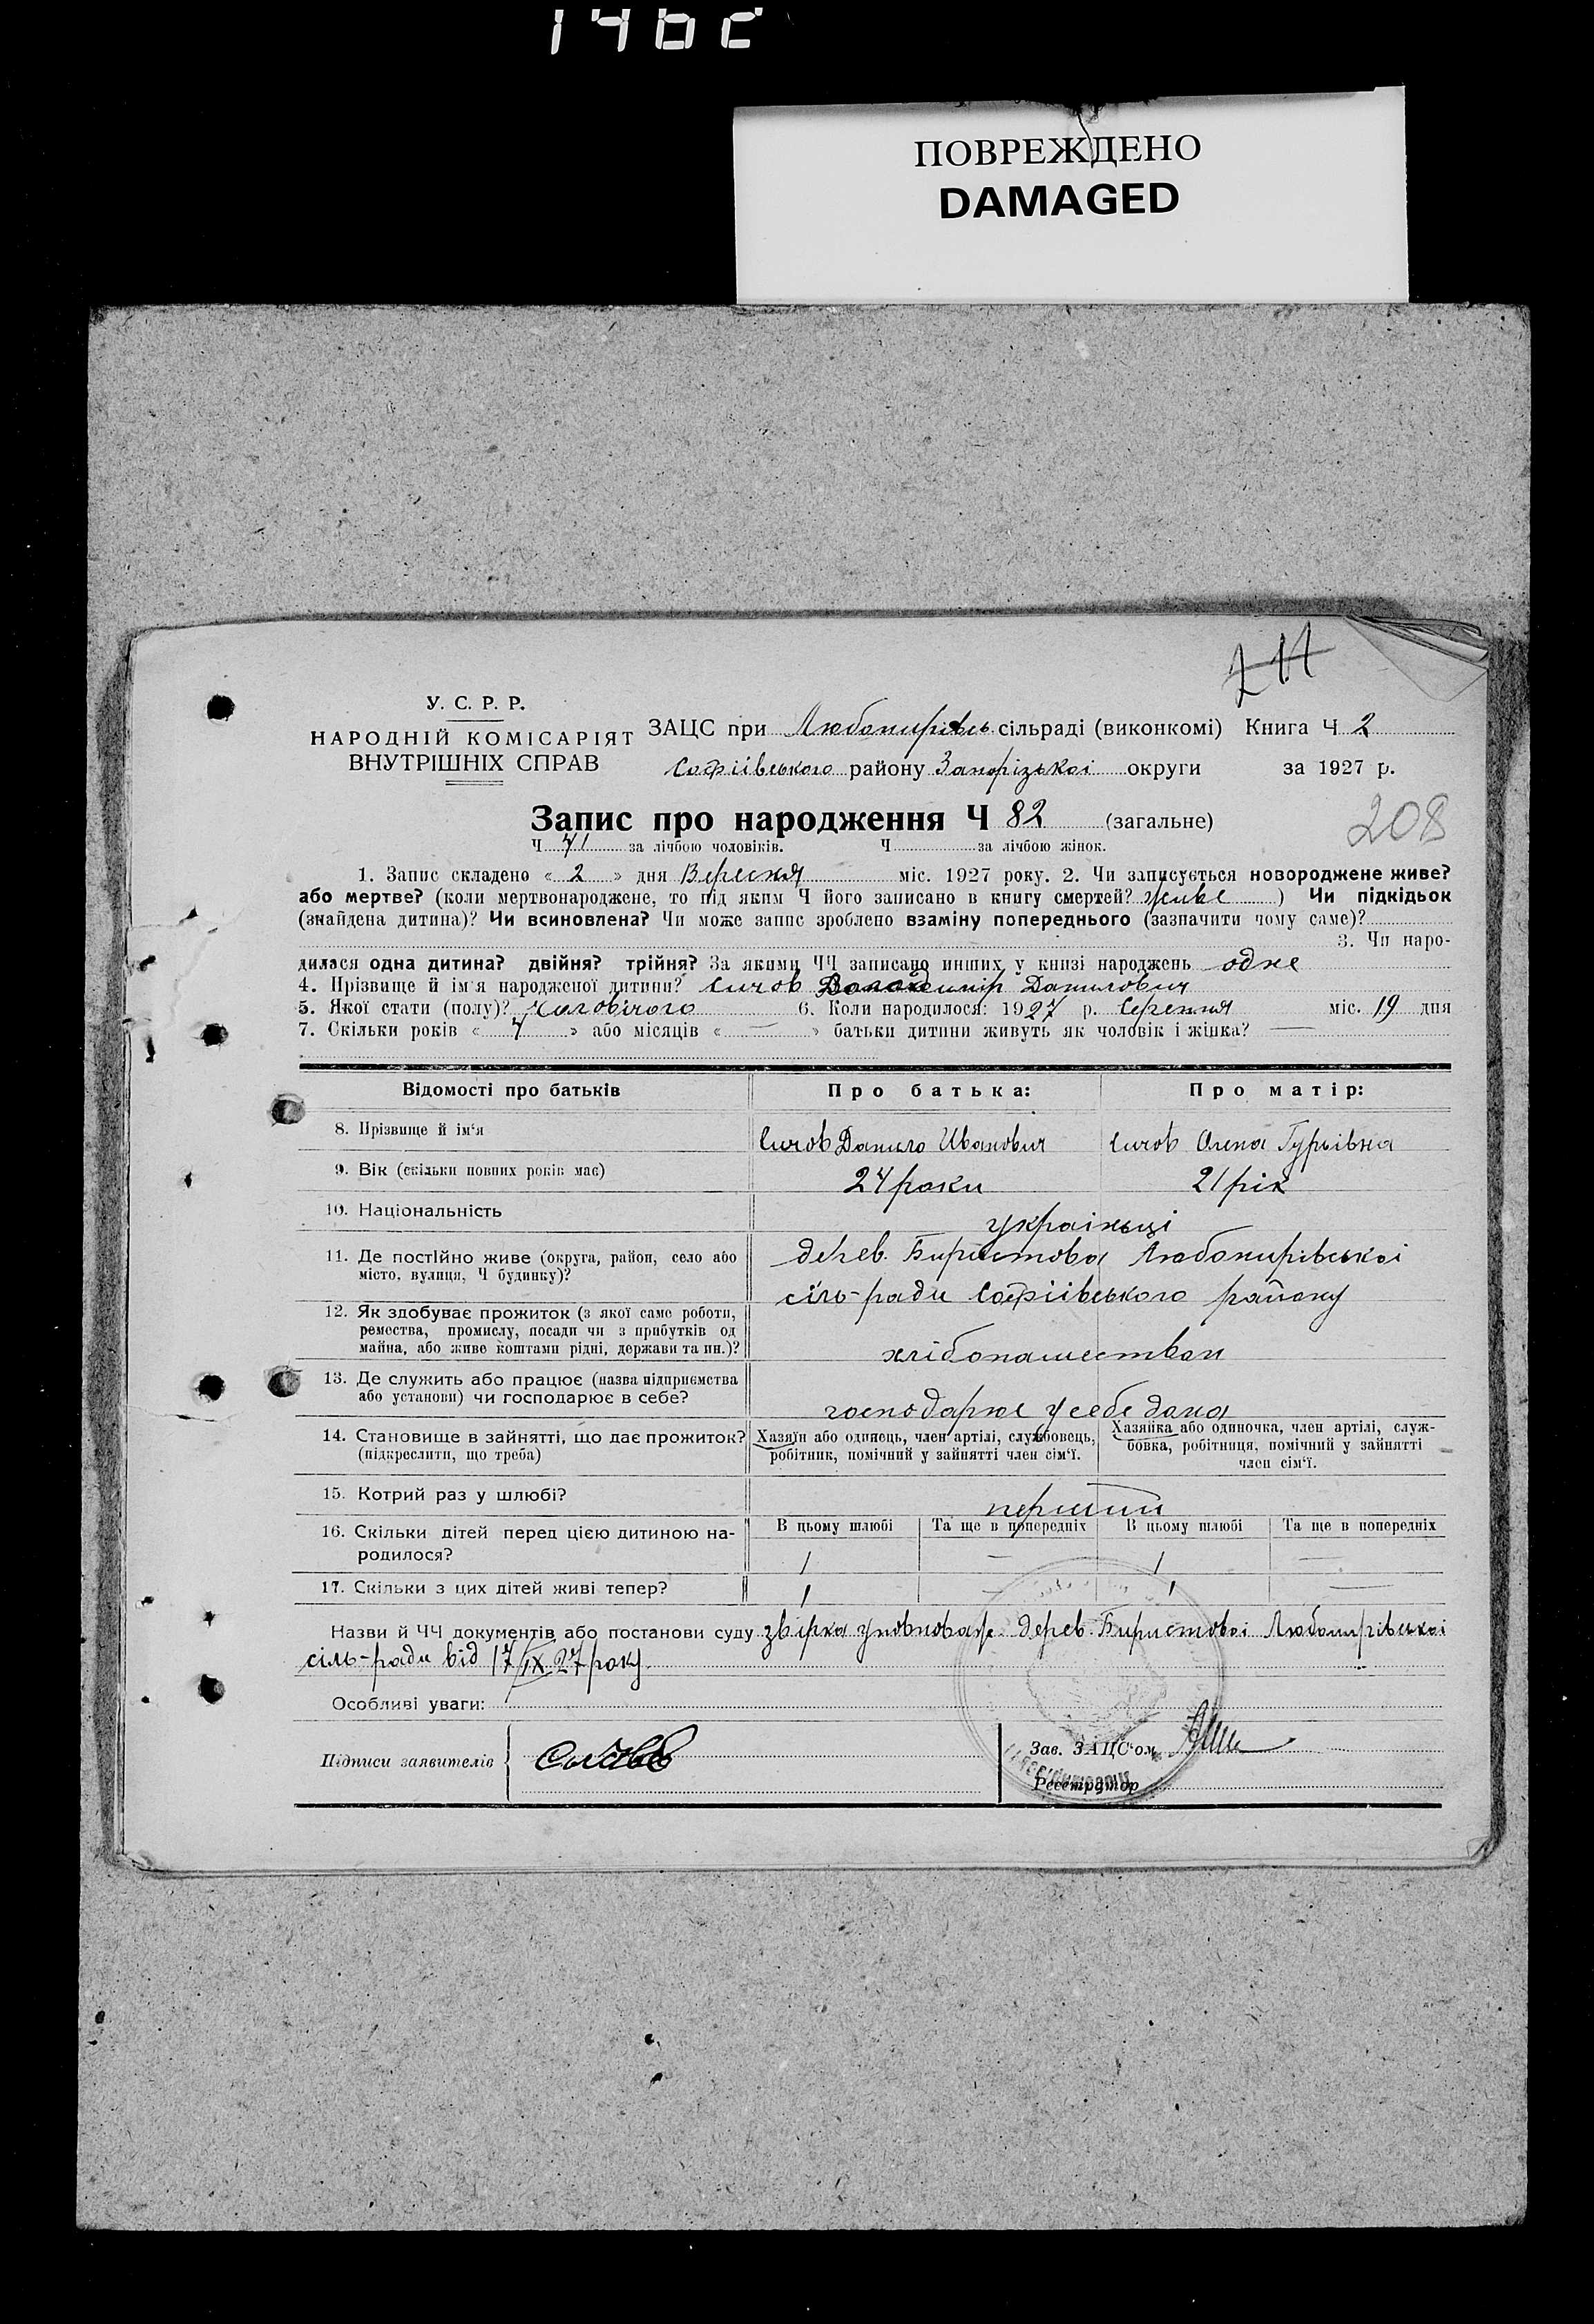 ПОВРЕЖДЕНО
DAMAGED
У. С. Р. Р.
НАРОДНІЙ КОМІСАРІЯТ
ВНУТРІШНІХ СПРАВ
ЗАЦС при Любомирівсь сільраді (виконкомі) Книга Ч 2
Софіівського району Запорізькоі округи за 1927 р.
Запис про народження Ч 82 (загальне)
208
Ч 41 за лічбою чоловіків. Ч за лічбою жінок.
1. Запис складено « 2 » дня Вересня міс. 1927 року. 2. Чи записується новороджене живе?
або мертве? (коли мертвонароджене, то під яким Ч його записано в книгу смертей? живе ) Чи підкідьок
(знайдена дитина)? Чи всиновлена? Чи може запис зроблено взаміну попереднього (зазначити чому саме)?
3. Чи наро-
дилася одна дитина? двійня? трійня? За якими ЧЧ записано инших у книзі народжень одне
4. Прізвище й ім'я народженої дитини? Сичов Володимір Данилович
5. Якої стати (полу)? Чоловічого 6. Коли народилося: 1927 р. Серпня міс. 19 дня
7. Скільки років « 4 » або місяців « — » батьки дитини живуть як чоловік і жінка? —
Відомості про батьків Про батька: Про матір:
8. Прізвище й ім'я Сичов Данило Иванович Сичов Олена Гурьівна
9. Вік (скільки повних років має) 24 роки 21 рік
10. Національність украіньці
11. Де постійно живе (округа, район, село або дерев. Биристова Любомирівськоі
місто, вулиця, Ч будинку)? сіль-ради Софіівського району
12. Як здобуває прожиток (з якої саме роботи,
ремества, промислу, посади чи з прибутків од
майна, або живе коштами рідні, держави та ин.)? хлібопашеством
13. Де служить або працює (назва підприємства
або установи) чи господарює в себе? господарює у себе дома
14. Становище в зайнятті, що дає прожиток? Хазяїн або одинець, член артілі, службовець, Хазяйка або одиночка, член артілі, служ-
(підкреслити, що треба) робітник, помічний у зайнятті член сім'ї. бовка, робітниця, помічний у зайнятті
член сім'ї.
15. Котрий раз у шлюбі? перший
16. Скільки дітей перед цією дитиною на- В цьому шлюбі Та ще в попередніх В цьому шлюбі Та ще в попередніх
родилося? 1 — 1 —
17. Скільки з цих дітей живі тепер? 1 — 1 —
Назви й ЧЧ документів або постанови суду звірка уповноваж. дерев. Биристовоі Любомирівськоі
сіль-ради від 17/IX 27 року.
Особливі уваги:
Підписи заявителів
Зав. ЗАЦС'ом
Реєстратор